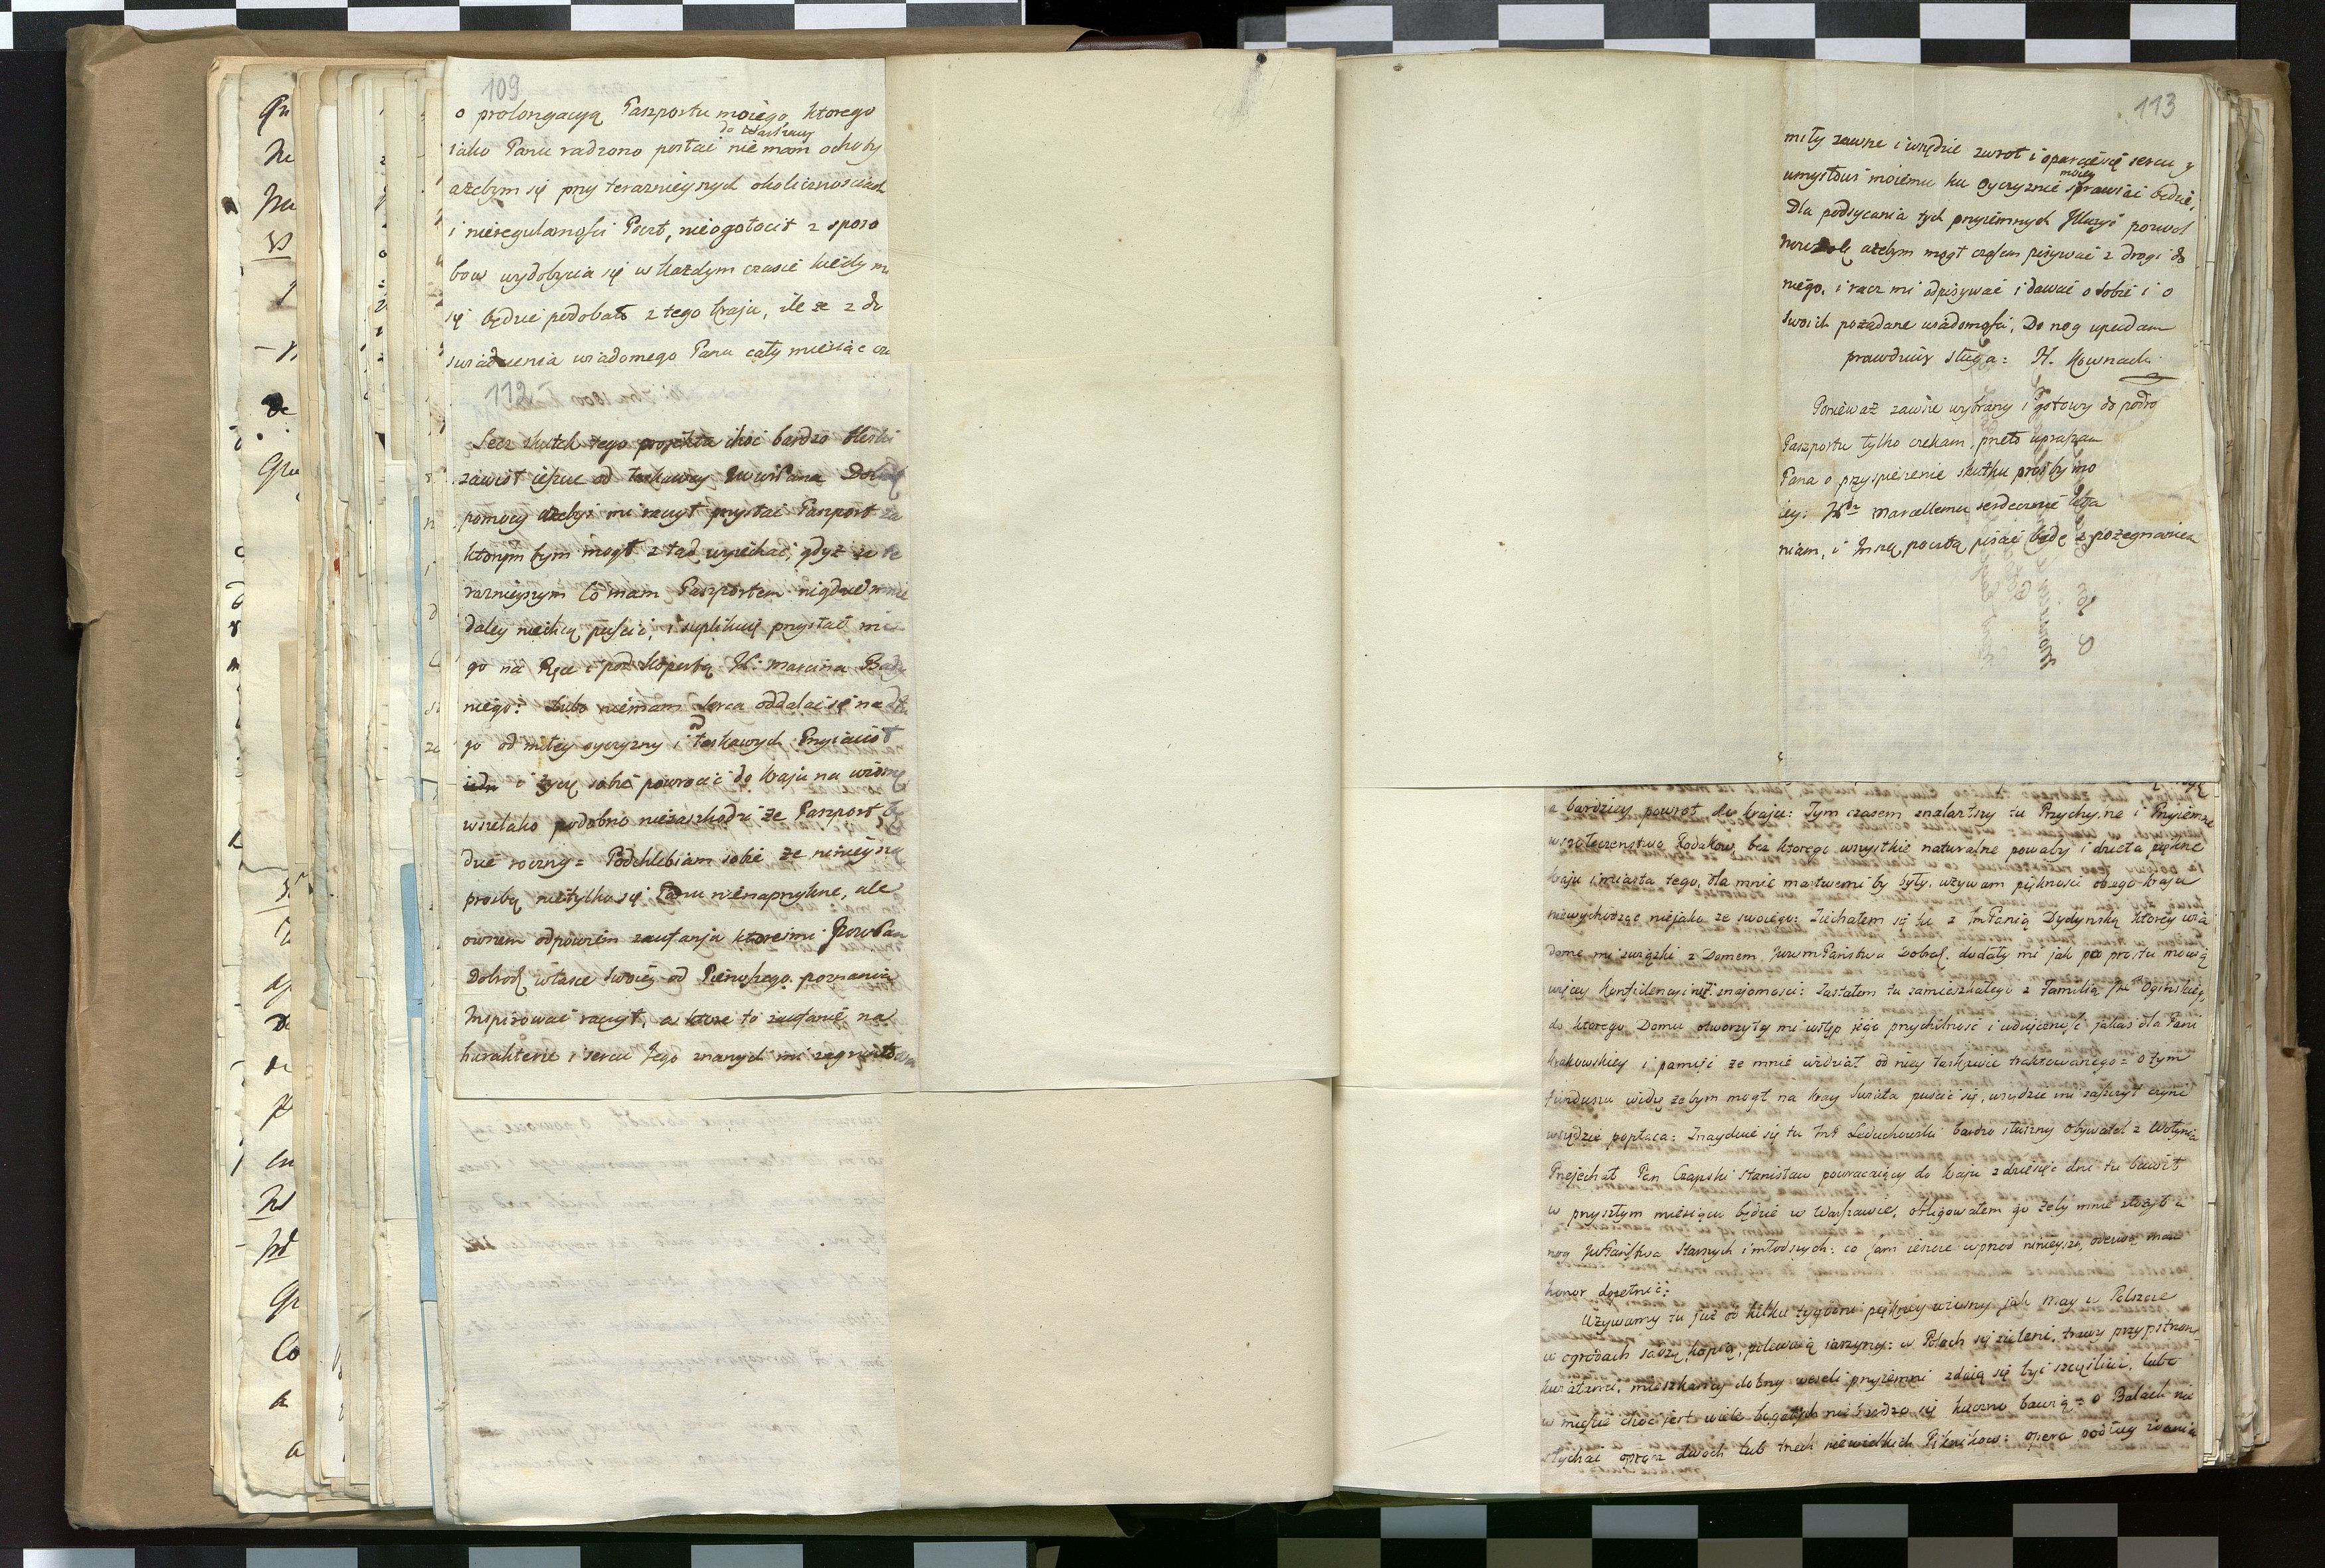 109
o prolongacyą Paszportu moiego, ktorego
do Warszawy
iako Panu radzono posłać nie mam ochoty
ażebym się przy teraznieyszych okolicznosciach
i nieregularnosci Poczt, nieogołocił z sposo
bow wydobycia się w każdym czasie kiedy mi
się będzie podobało z tego kraju, ile że z do
swiadczenia wiadomego Panu cały miesiąc cze
112
Lecz skutek tego projektu choć bardzo bliski
zawisł ieszcze od łaskawey Pana
pomocy ażebyś mi raczył przysłać Paszport za
ktorym bym mogł z tąd wyiechać, gdyż za te
raznieyszym co mam Paszportem nigdzie mnie
daley niechcą puścić, i suplikuię przysłać mi
go na Ręce i pod kopertą Marcina
niego: Lubo niemam serca oddalać się na dłu
go od miłey oyczyzny i od łaskawych Przyiacioł
i życzę sobie powrocić do kraju na wiosnę
wszelako podobno niezaszkodzi że Paszport bę
dzie roczny = Podchlebiam sobie że ninieyszą
prozbą nietylko się Panu nienaprzykrzę, ale
owszem odpowiem zaufaniu ktoreś mi Pan
Dobrodz w łasce swoiey od Pierwszego poznania
Inspirować raczył, a ktore to zaufanie na
harakterze i sercu Jego znanych mi
113
miły zawsze i wszędzie zwrot i oparcie się sercu y
moiey
umysłowi moiemu ku Oyczyznie sprawiać będzie,
Dla podsycania tych przyiemnych Illuzyi pozwol
ażebym mogł czasem pisywać z drogi do
niego, i racz mi odpisywać i dawać o sobie i o
swoich pożądane wiadomosci, Do nog upadam
prawdziwy sługa: H. Kownacki
Ponieważ zawsze wybrany i gotowy do podro
Paszportu tylko czekam, przeto upraszam
Pana o przyspieszenie skutku prozby mo
iey: Marcellemu serdecznie kła
niam, i Inszą pocztą pisać będę z pożegnaniem
a bardziey powrot do kraju: Tym czasem znalazłszy tu Przychylne i Przyiemne
wspołeczenstwo Rodakow, bez ktorego wszystkie naturalne powaby i dzieła piękne
kraju i miasta tego, dla mnie martwemi by były, używam pięknosci obcego kraju
niewychodząc nieiako ze swoiego: Ziechałem się tu z ImPanią Dydynską ktorey wia
dome mi związki z Domem Państwa Dobrodz. dodały mi jak po prostu mowią
więcey konfidencyi niż znajomosci: Zastałem tu zamieszkałego z Familią Ogińskiego,
do ktorego Domu otworzyły mi wstęp jego przychilność i wdzięczność jakaś dla Pani
Krakowskiey i pamięć że mnie widział od niey łaskawie traktowanego = o tym
funduszu widzę żebym mogł na kray swiata puścić się, wszędzie mi zaszczyt czyni
wszędzie popłaca: Znayduie się tu Leduchowski bardzo słuszny obywatel z Wołynia
Przejechał Pan Czapski Stanisław powracaiący do kraju z dziesięć dni tu bawił
w przyszłym miesiącu będzie w Warszawie, obligowałem go żeby mnie złożył u
nog Państwa starszych i młodszych: co jam ieszcze wprzod ninieyszą, odezwą mam
honor dopełnić:
Używamy tu już od kilku tygodni piękney wiosny jak May w Polszcze
w ogrodach sadzą, kopią, polewaią iarzyny: w Polach się zieleni, trawy przypstrzone
kwiatami, mieszkańcy dobrzy weseli przyiemni zdaią się być szczęśliwi, lubo
w miescie choć jest wiele bogatych nie bardzo się hucznie bawią = o Balach nie
słychać oprocz dwoch lub trzech niewielkich Piknikow: opera podług zdania